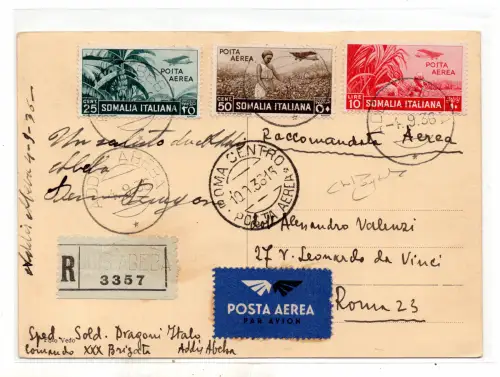 POSTA
AEREA
CENT.
25
SOMALIA ITALIANA
POSTA
AEREA
CENT.
50
SOMALIA ITALIANA
POSTA
AEREA
LIRE
10
SOMALIA ITALIANA
-4.9.36
Raccomandata Aerea
Un saluto
ADDIS ABEBA
ROMA CENTRO
POSTA AEREA
Addis Abeba 4-9-36
Alessandro Valenzi
27 V. Leonardo da Vinci
Roma 23
R
ADDIS ABEBA
3357
POSTA AEREA
PAR AVION
Sped. Sold. Dragoni Italo
Comando XXX Brigata Addis Abeba